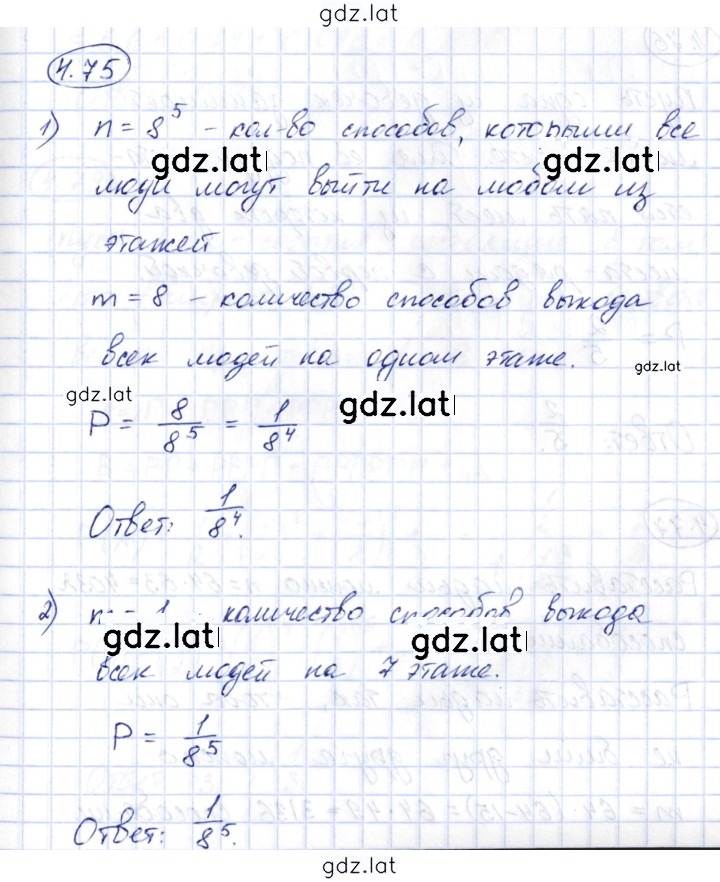 gdz.lat
4.75
1) n = 8^5 - кол-во способов, которыми все
gdz.lat gdz.lat
люди могут выйти на любом из
этажей
m = 8 - количество способов выхода
всех людей на одном этаже.
gdz.lat
gdz.lat gdz.lat
P = 8/8^5 = 1/8^4
Ответ: 1/8^4.
2) = 1 количество способов выхода
gdz.lat gdz.lat
всех людей на 7 этаже.
P = 1/8^5
Ответ: 1/8^5.
gdz.lat